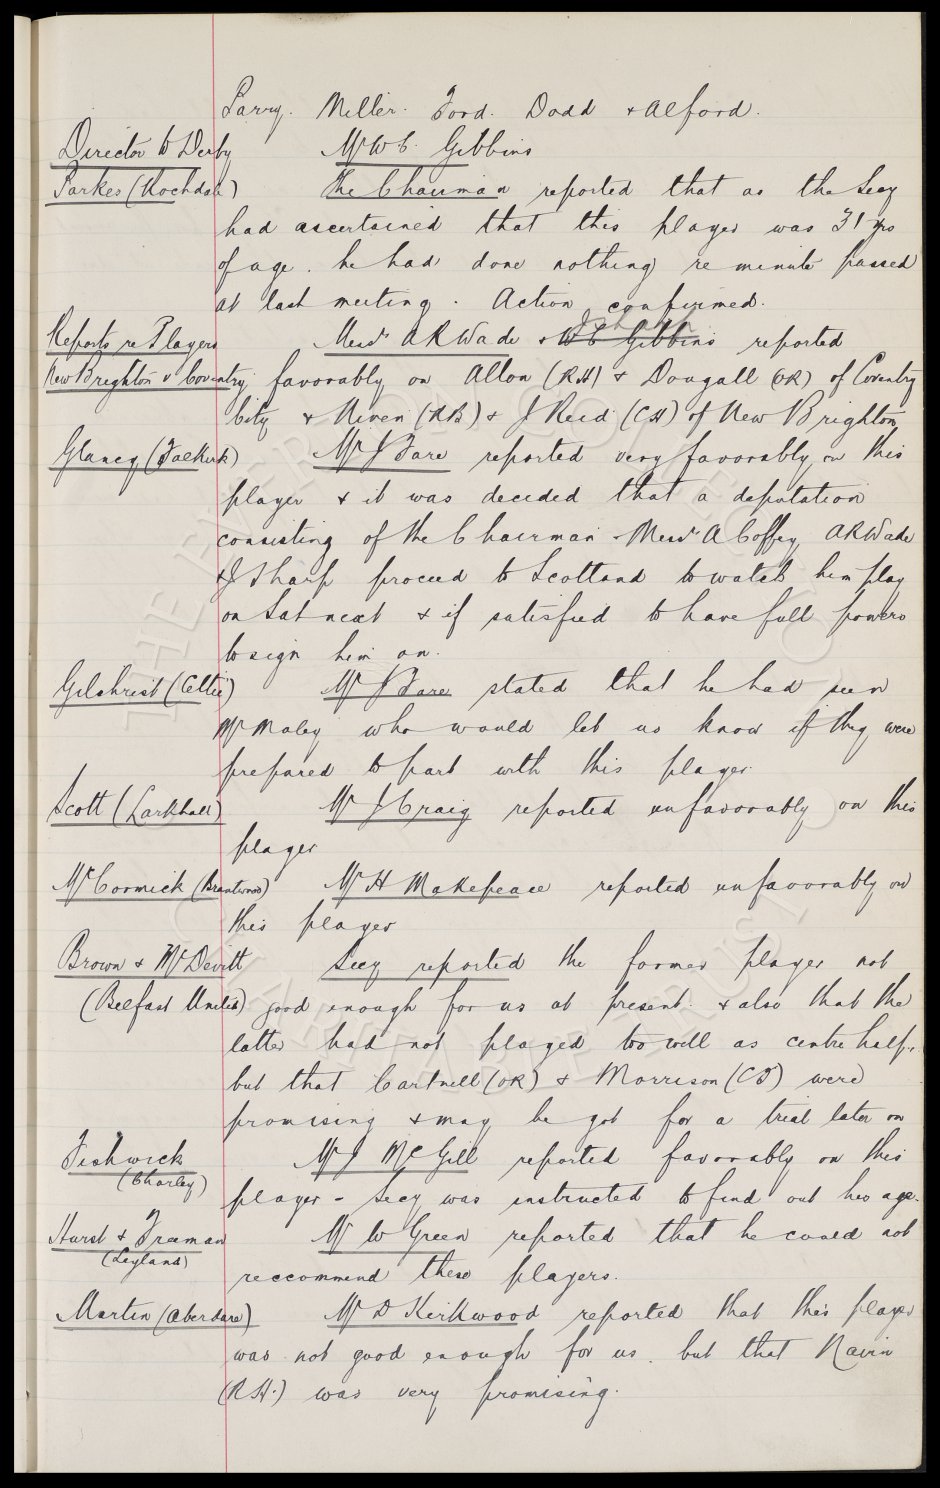 Parry. Miller. Ford. Dodd & Alford.
Director to Derby Mr W C Gibbins
Parkes (Rochdale) The Chairman reported that as the Secy
had ascertained that this player was 31 yrs
of age. he had done nothing re minute passed
at last meeting. Action confirmed.
Reports re Players Messrs A R Wade & W C Gibbins reported
New Brighton v Coventry favorably on Allon (RH) & Dougall (OR) of Coventry
City & Niven (RB) & J Reid (CH) of New Brighton
Glancy (Falkirk) Mr J Fare reported very favorably on this
player & it was decided that a deputation
consisting of the Chairman - Messrs A Coffey A R Wade
& J Sharp proceed to Scotland to watch him play
on Sat next & if satisfied to have full powers
to sign him on.
Gilchrist (Celtic) Mr J Fare stated that he had seen
Mr Maley who would let us know if they were
prepared to part with this player.
Scott (Larkhall) Mr J Craig reported unfavorably on this
player
McCormick (Brantwood) Mr H Makepeace reported unfavorably on
this player
Brown & McDevitt Secy reported the former player not
(Belfast United) good enough for us at present. & also that the
latter had not played too well as centre half.
but that Cartmell (OR) & Morrison (CF) were
promising & may be got for a trial later on
Fishwick Mr J McGill reported favorably on this
(Chorley)
player - Secy was instructed to find out his age.
Hurst & Freeman Mr W Green reported that he could not
(Leyland)
reccommend these players.
Martin (Aberdare) Mr D Kirkwood reported that this player
was not good enough for us. but that Navin
(RH.) was very promising.